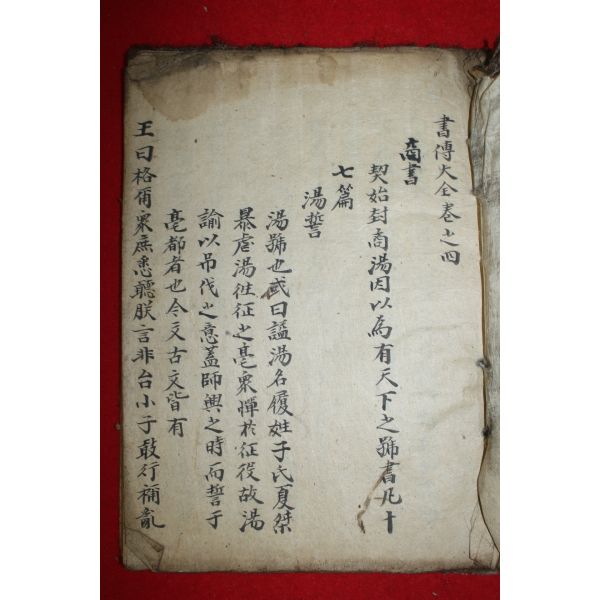 書傳大全卷之四
商書
契始封商湯因以為有天下之號書凡十
七篇
湯誓
湯號也或曰諡湯名履姓子氏夏桀
暴虐湯徃征之亳衆憚於征役故湯
諭以吊伐之意蓋師興之時而誓于
亳都者也今文古文皆有
王曰格爾衆庶悉聽朕言非台小子敢行稱亂